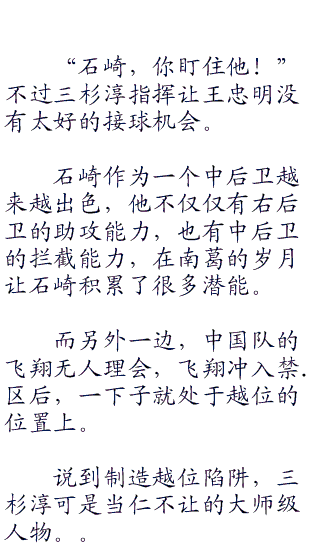 “石崎，你盯住他！”
不过三杉淳指挥让王忠明没
有太好的接球机会。
石崎作为一个中后卫越
来越出色，他不仅仅有右后
卫的助攻能力，也有中后卫
的拦截能力，在南葛的岁月
让石崎积累了很多潜能。
而另外一边，中国队的
飞翔无人理会，飞翔冲入禁.
区后，一下子就处于越位的
位置上。
说到制造越位陷阱，三
杉淳可是当仁不让的大师级
人物。。